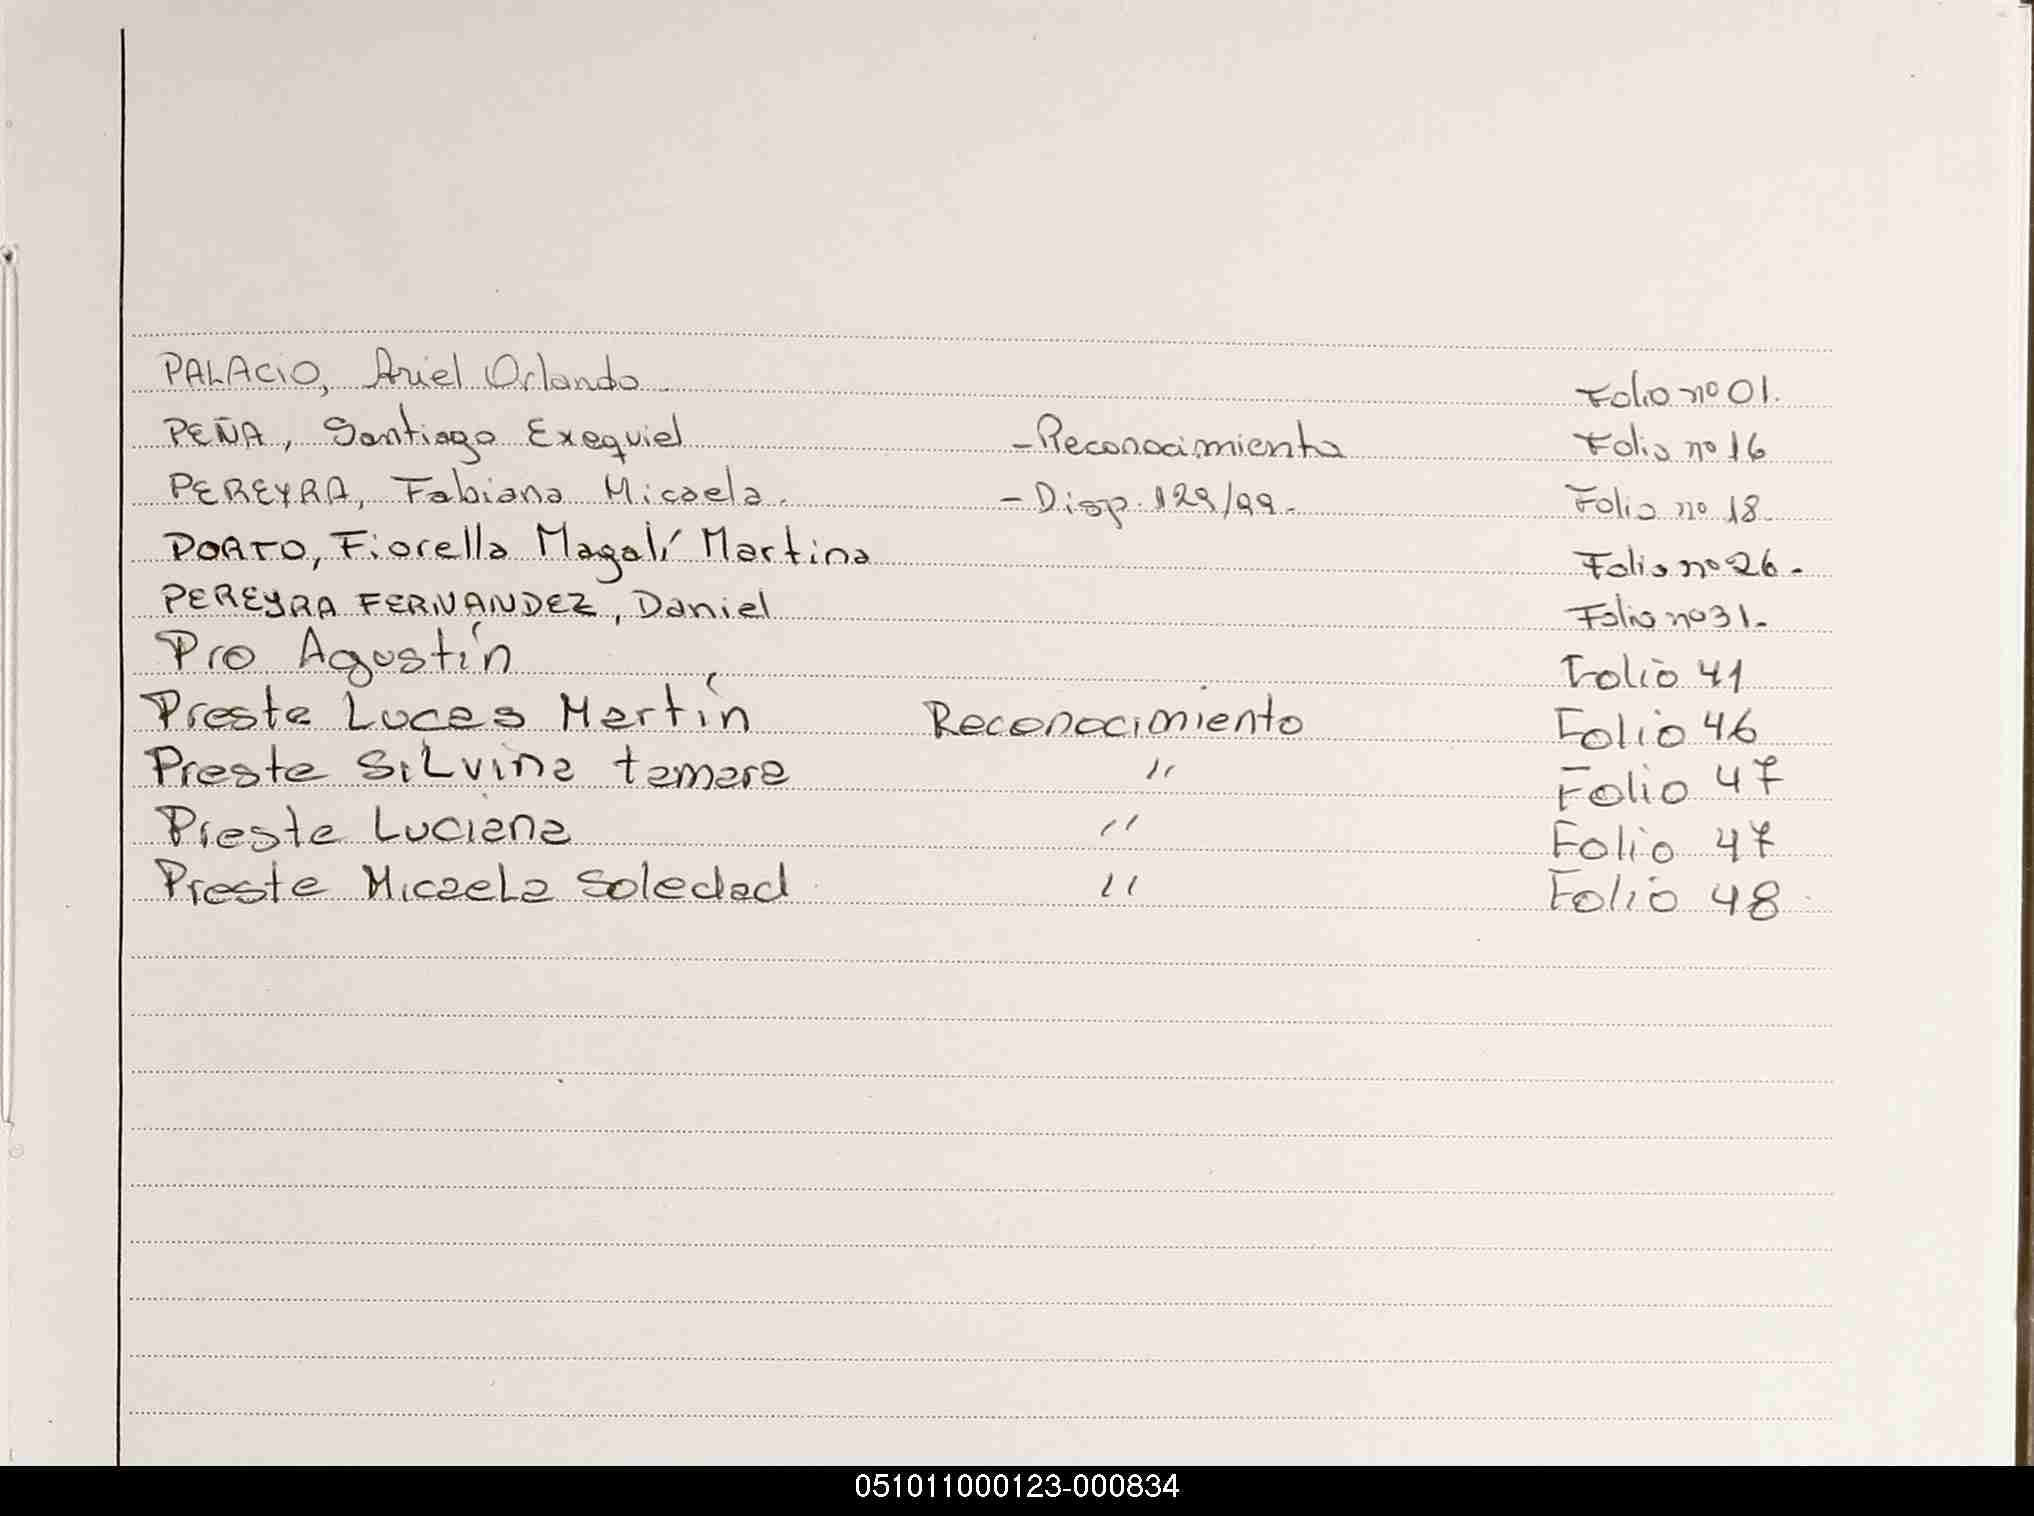 PALACIO, Ariel Orlando Folio nº 01.
PEÑA, Santiago Exequiel - Reconocimiento Folio nº 16
PEREYRA, Fabiana Micaela. - Disp. 129/99.- Folio nº 18.
PORTO, Fiorella Magalí Martina Folio nº 26.-
PEREYRA FERNANDEZ, Daniel Folio nº 31.-
Pro Agustín Folio 41
Preste Lucas Martín Reconocimiento Folio 46
Preste Silvina tamara " Folio 47
Preste Luciana " Folio 47
Preste Micaela Soledad " Folio 48
051011000123-000834